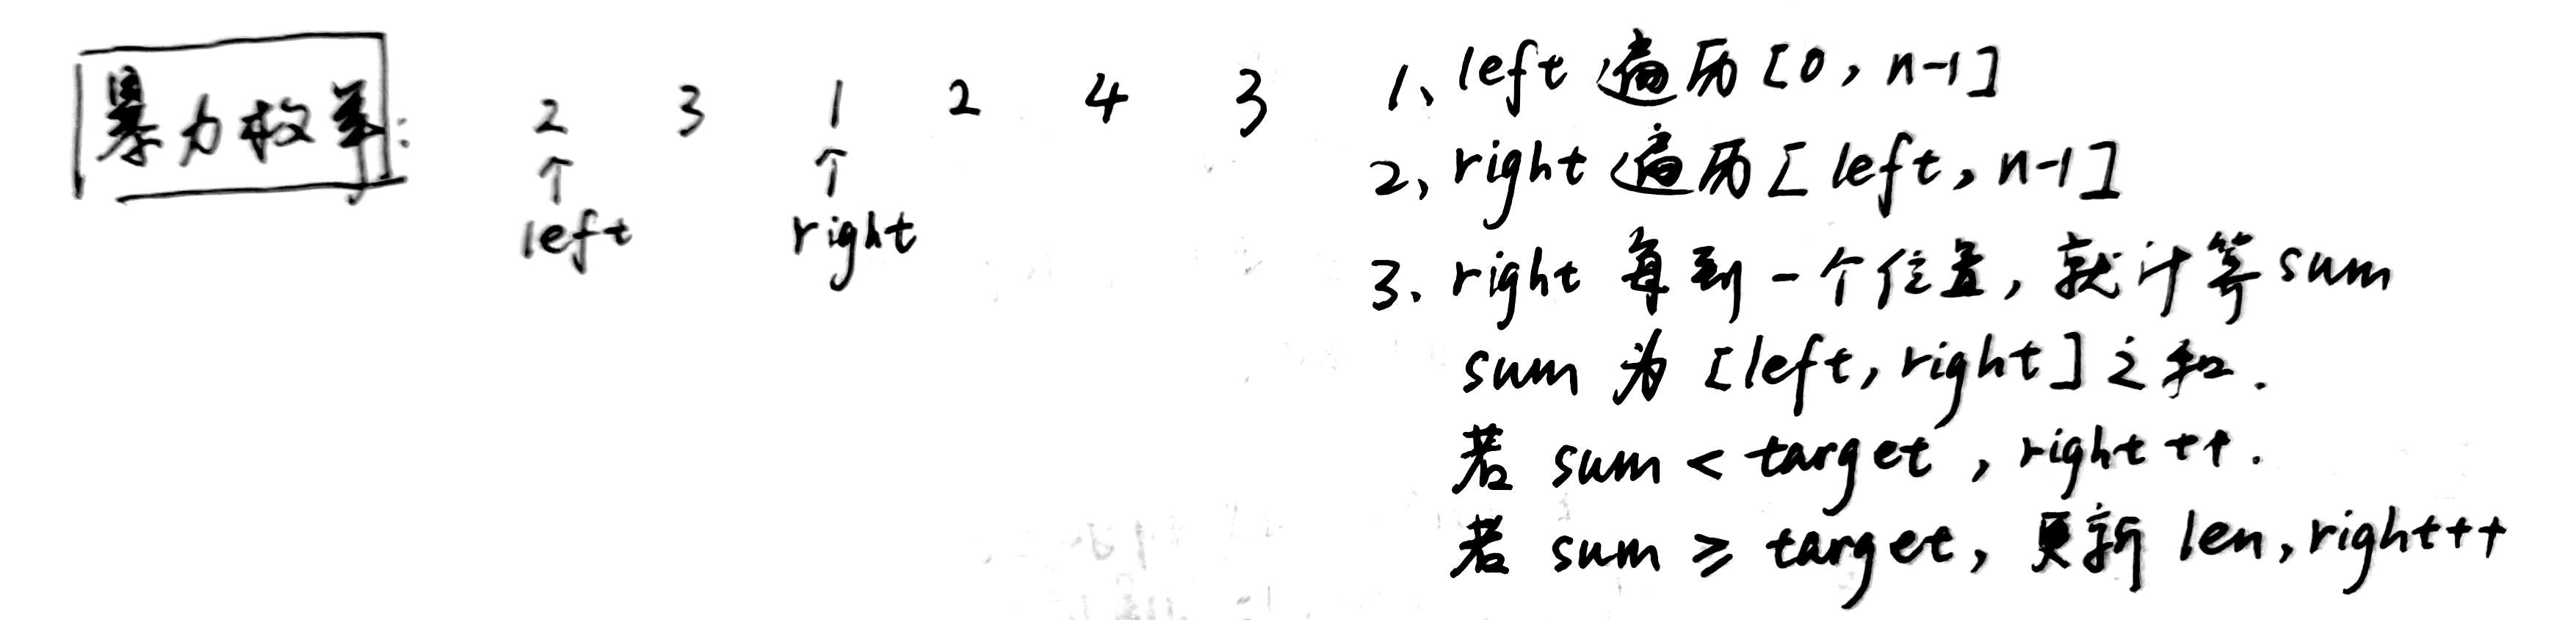 暴力枚举:
2 3 1 2 4 3
↑ ↑
left right
1、left 遍历 [0, n-1]
2, right 遍历 [left, n-1]
3. right 每到一个位置, 就计算 sum
sum 为 [left, right] 之和.
若 sum < target, right++.
若 sum ≥ target, 更新 len, right++